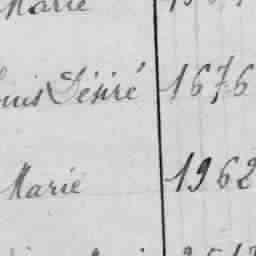 Marie
ouis Désiré 1676
Marie 1962